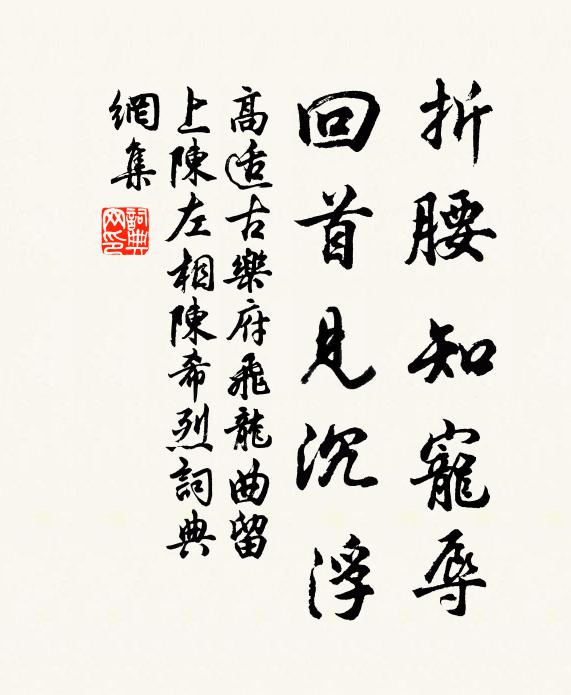 折腰知寵辱
回首見沉浮
高適古樂府飛龍曲留
上陳左相陳希烈詞典
網集
詞典网印